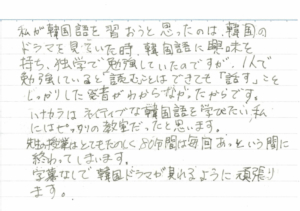 私が韓国語を習おうと思ったのは、韓国の
ドラマを見ていた時、韓国語に興味を
持ち、独学で勉強していたのですが、1人で
勉強していると"読むことはできても"話す"こと
しっかりした発音がわからなかったからです。
ハナカラはネイティブな韓国語を学びたい私
にはピッタリの教室だったと思います。
授業はとてもたのしく80分間は毎回あっという間に
終わってしまいます。
字幕なしで韓国ドラマが見れるように頑張り
ます。